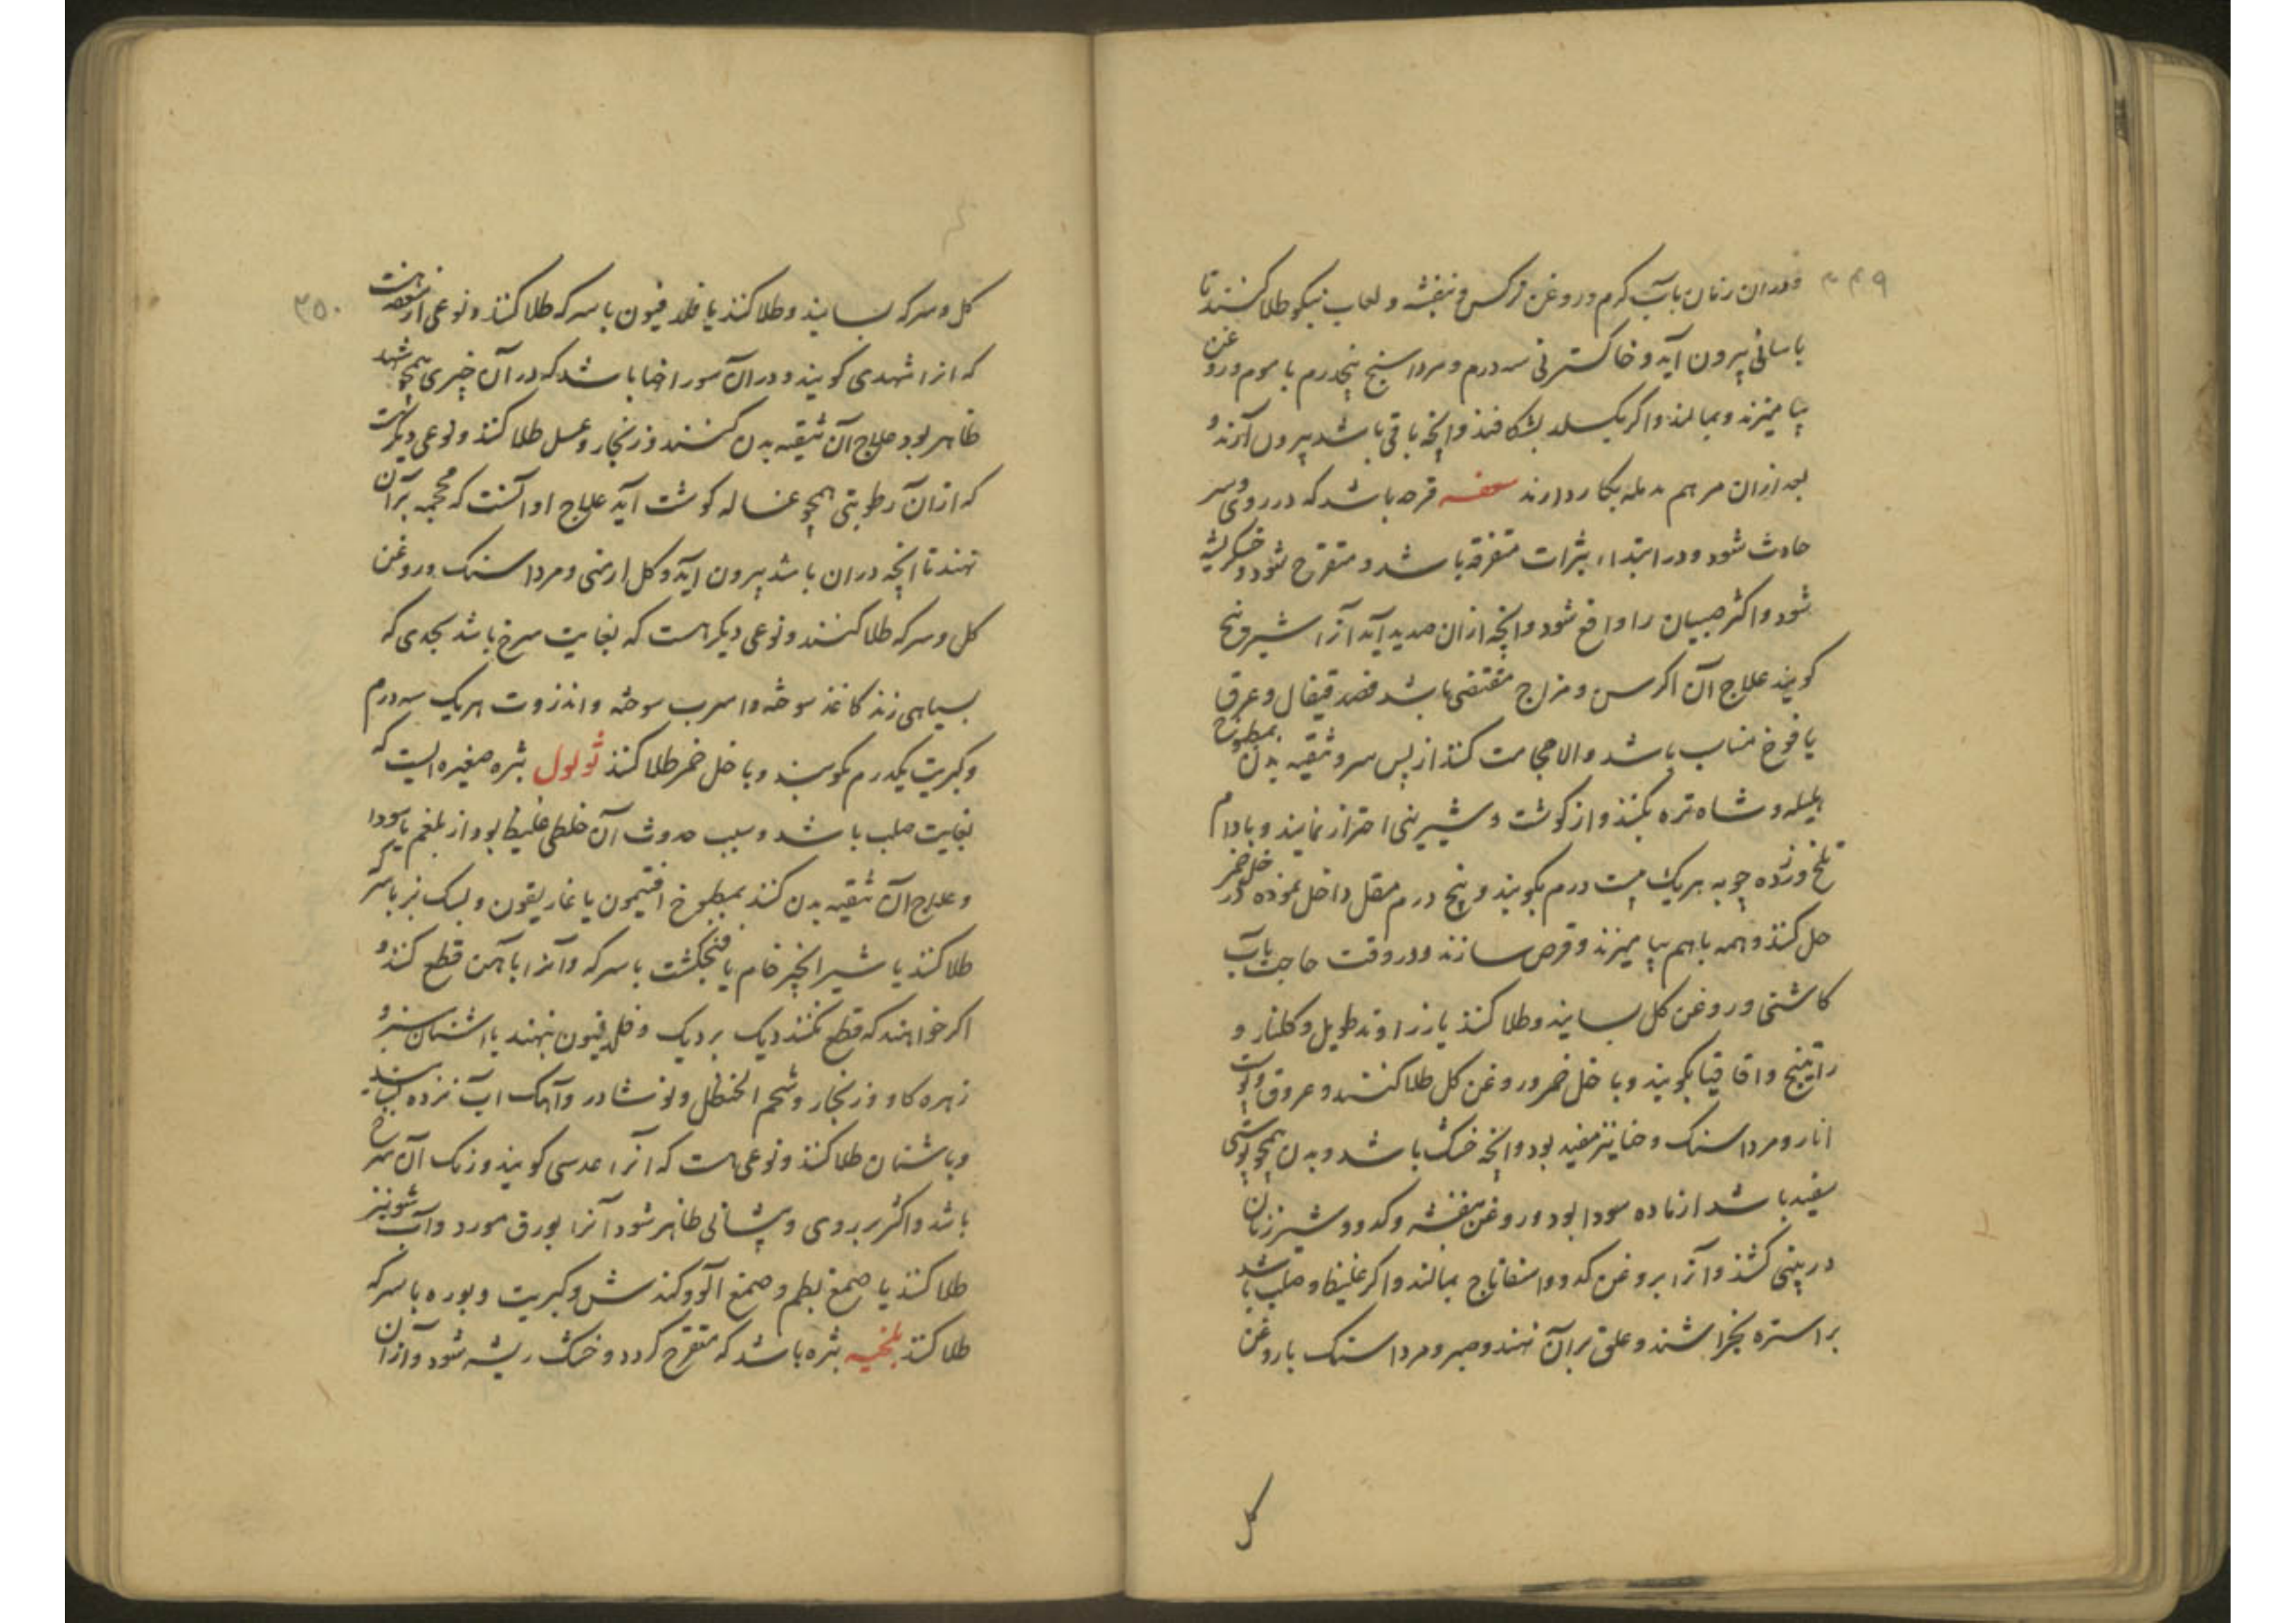 ۳۴۹
و دران زمان بآب کرم و روغن نرکس و بنفشه و لعاب نیکو طلا کنند تا
باسانی بیرون آید و خاکستر نی سه درم و مرداسنج پنجدرم با موم و روغن
بیامیزند و بمالند و اکر بکسلد بشکافند و انچه باقی باشد بیرون آرند و
بعد ازان مرهم مدمله بکار دارند سعفه قرحه باشد که در روی و سر
حادث شود و در ابتداء بثرات متفرقه باشد و متقرح شود و خشکریشه
شود و اکثر صبیان را واقع شود و انچه ازان صدید آید آنرا شیرونج
کویند علاج آن اکر سن و مزاج مقتضی باشد فصد قیفال و عرق
یافوخ مناسب باشد و الا حجامت کنند از پس سر و تنقیه بدن بمطبوخ
هلیله و شاه تره بکنند و از کوشت و شیرینی احتراز نمایند و بادام
تلخ و زرده چوبه هریک بیست درم بکوبند و پنج درم مقل داخل نموده در خل خمر
حل کنند و همه باهم بیامیزند و قرص سازند و در وقت حاجت بآب
کاشنی و روغن کل بسایند و طلا کنند یا زراوند طویل و کلنار و
راتینج و اقاقیا بکوبند و با خل خمر و روغن کل طلا کنند و عروق و پوست
انار و مرداسنک و حنا نیز مفید بود و انچه خشک باشد و بدن همچو پوستی
سفید باشد از ماده سودا بود و روغن بنفشه و کدو و شیر زنان
در بینی کشند و آنرا بروغن کدو و اسفاناج بمالند و اکر غلیظ و صلب باشد
براستره بخراشند و علق بران نهند و صبر و مرداسنک با روغن
کل
۳۵۰
کل و سرکه بسایند و طلا کنند یا فلدفیون با سرکه طلا کنند و نوعی از سعفه هست
که انرا شهدی کویند و دران سوراخها باشد که در آن چیزی همچو شهد
ظاهر بود علاج آن تنقیه بدن کنند و زنکار و عسل طلا کنند و نوعی دیکر هست
که ازان رطوبتی همچو غساله کوشت آید علاج او آنست که محجمه بر آن
نهند تا انچه دران باشد بیرون اید و کل ارمنی و مرداسنک و روغن
کل و سرکه طلا کنند و نوعی دیکر هست که بغایت سرخ باشد بحدی که
بسیاهی زند کاغذ سوخته و اسرب سوخته و انزروت هریک سه درم
و کبریت یکدرم بکوبند و با خل خمر طلا کنند ثولول بثره صغیره ایست که
بغایت صلب باشد و سبب حدوث آن خلطی غلیظ بود از بلغم یا سودا
و علاج آن تنقیه بدن کنند بمطبوخ افتیمون یا غاریقون و پشک بز با سرکه
طلا کنند یا شیر انجیر خام یا فنجنکشت با سرکه و آنرا بآهن قطع کنند و
اکر خواهند که قطع نکنند دیک بردیک و فلدفیون بنهند یا اشنان سبز و
زهره کاو و زنکار و شحم الحنظل و نوشادر و آهک اب نزده بسایند
و باشنان طلا کنند و نوعی هست که آنرا عدسی کویند و رنک آن سرخ
باشد و اکثر بر روی و پیشانی ظاهر شود آنرا بورق مورد و آب شونیز
طلا کنند یا صمغ بطم و صمغ آلو و کندش و کبریت و بوره با سرکه
طلا کنند بلخیه بثره باشد که متقرح کردد و خشک ریشه شود و ازان